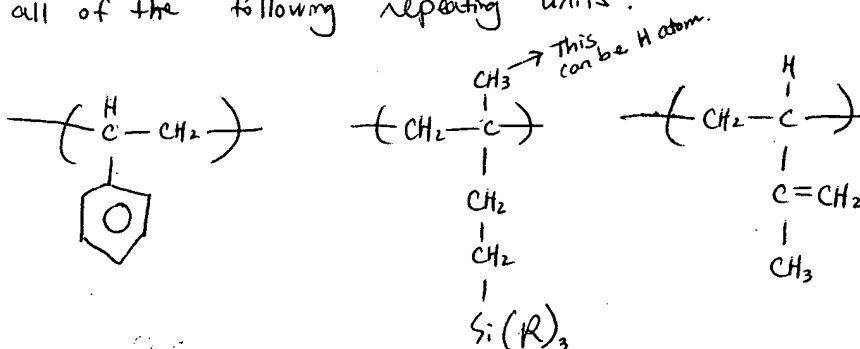 all of the following repeating units.
This can be H atom.
CH3
H
C — CH2
CH2 — C
CH2
CH2
Si(R)3
H
CH2 — C
C = CH2
CH3